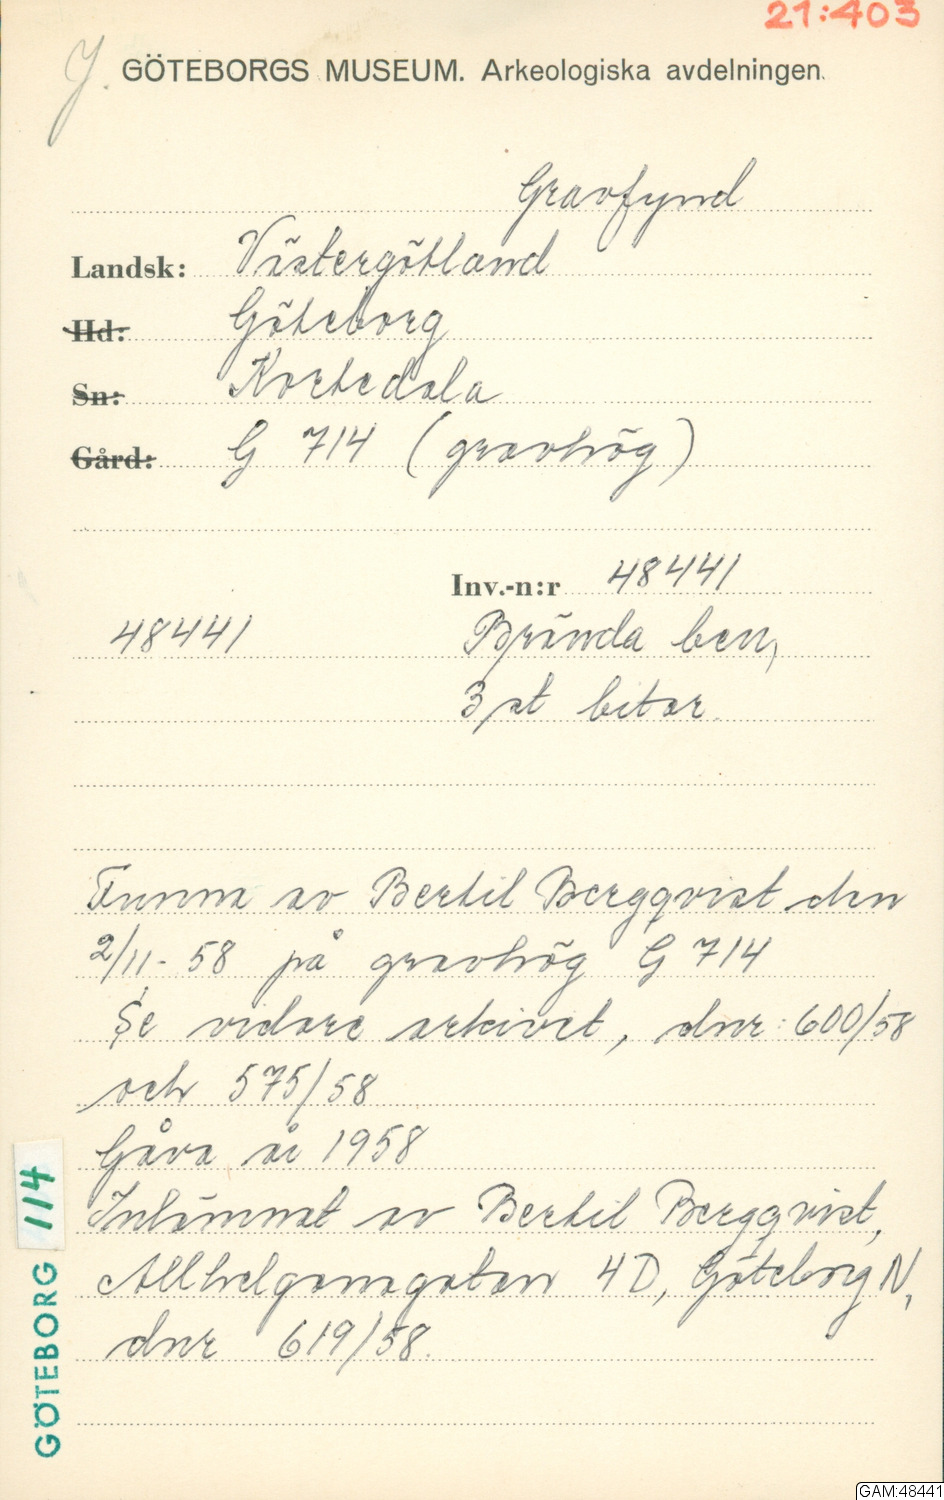 21:403
J. GÖTEBORGS MUSEUM. Arkeologiska avdelningen.
Gravfynd
Landsk: Västergötland
Hd: Göteborg
Sn: Kortedala
Gård: G 714 (gravhög)
Inv.-n:r 48441
48441 Brända ben,
3 st bitar
Funna av Bertil Bergqvist den
2/11-58 på gravhög G 714
Se vidare arkivet, dnr: 600/58
och 575/58
Gåva år 1958
Inlämnat av Bertil Bergqvist,
Allhelgonagatan 4D, Göteborg N,
dnr 619/58.
GÖTEBORG 114
GAM:48441